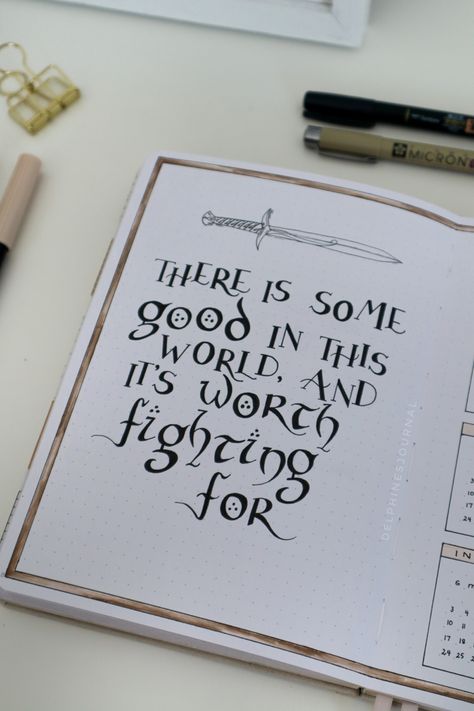 MICRON
THERE IS SOME
good IN THIS
WORLD, AND
IT'S WORTH
fighting
for
DELPHINESJOURNAL
17
24
IN
G
3 4
10 11
17 18
24 25